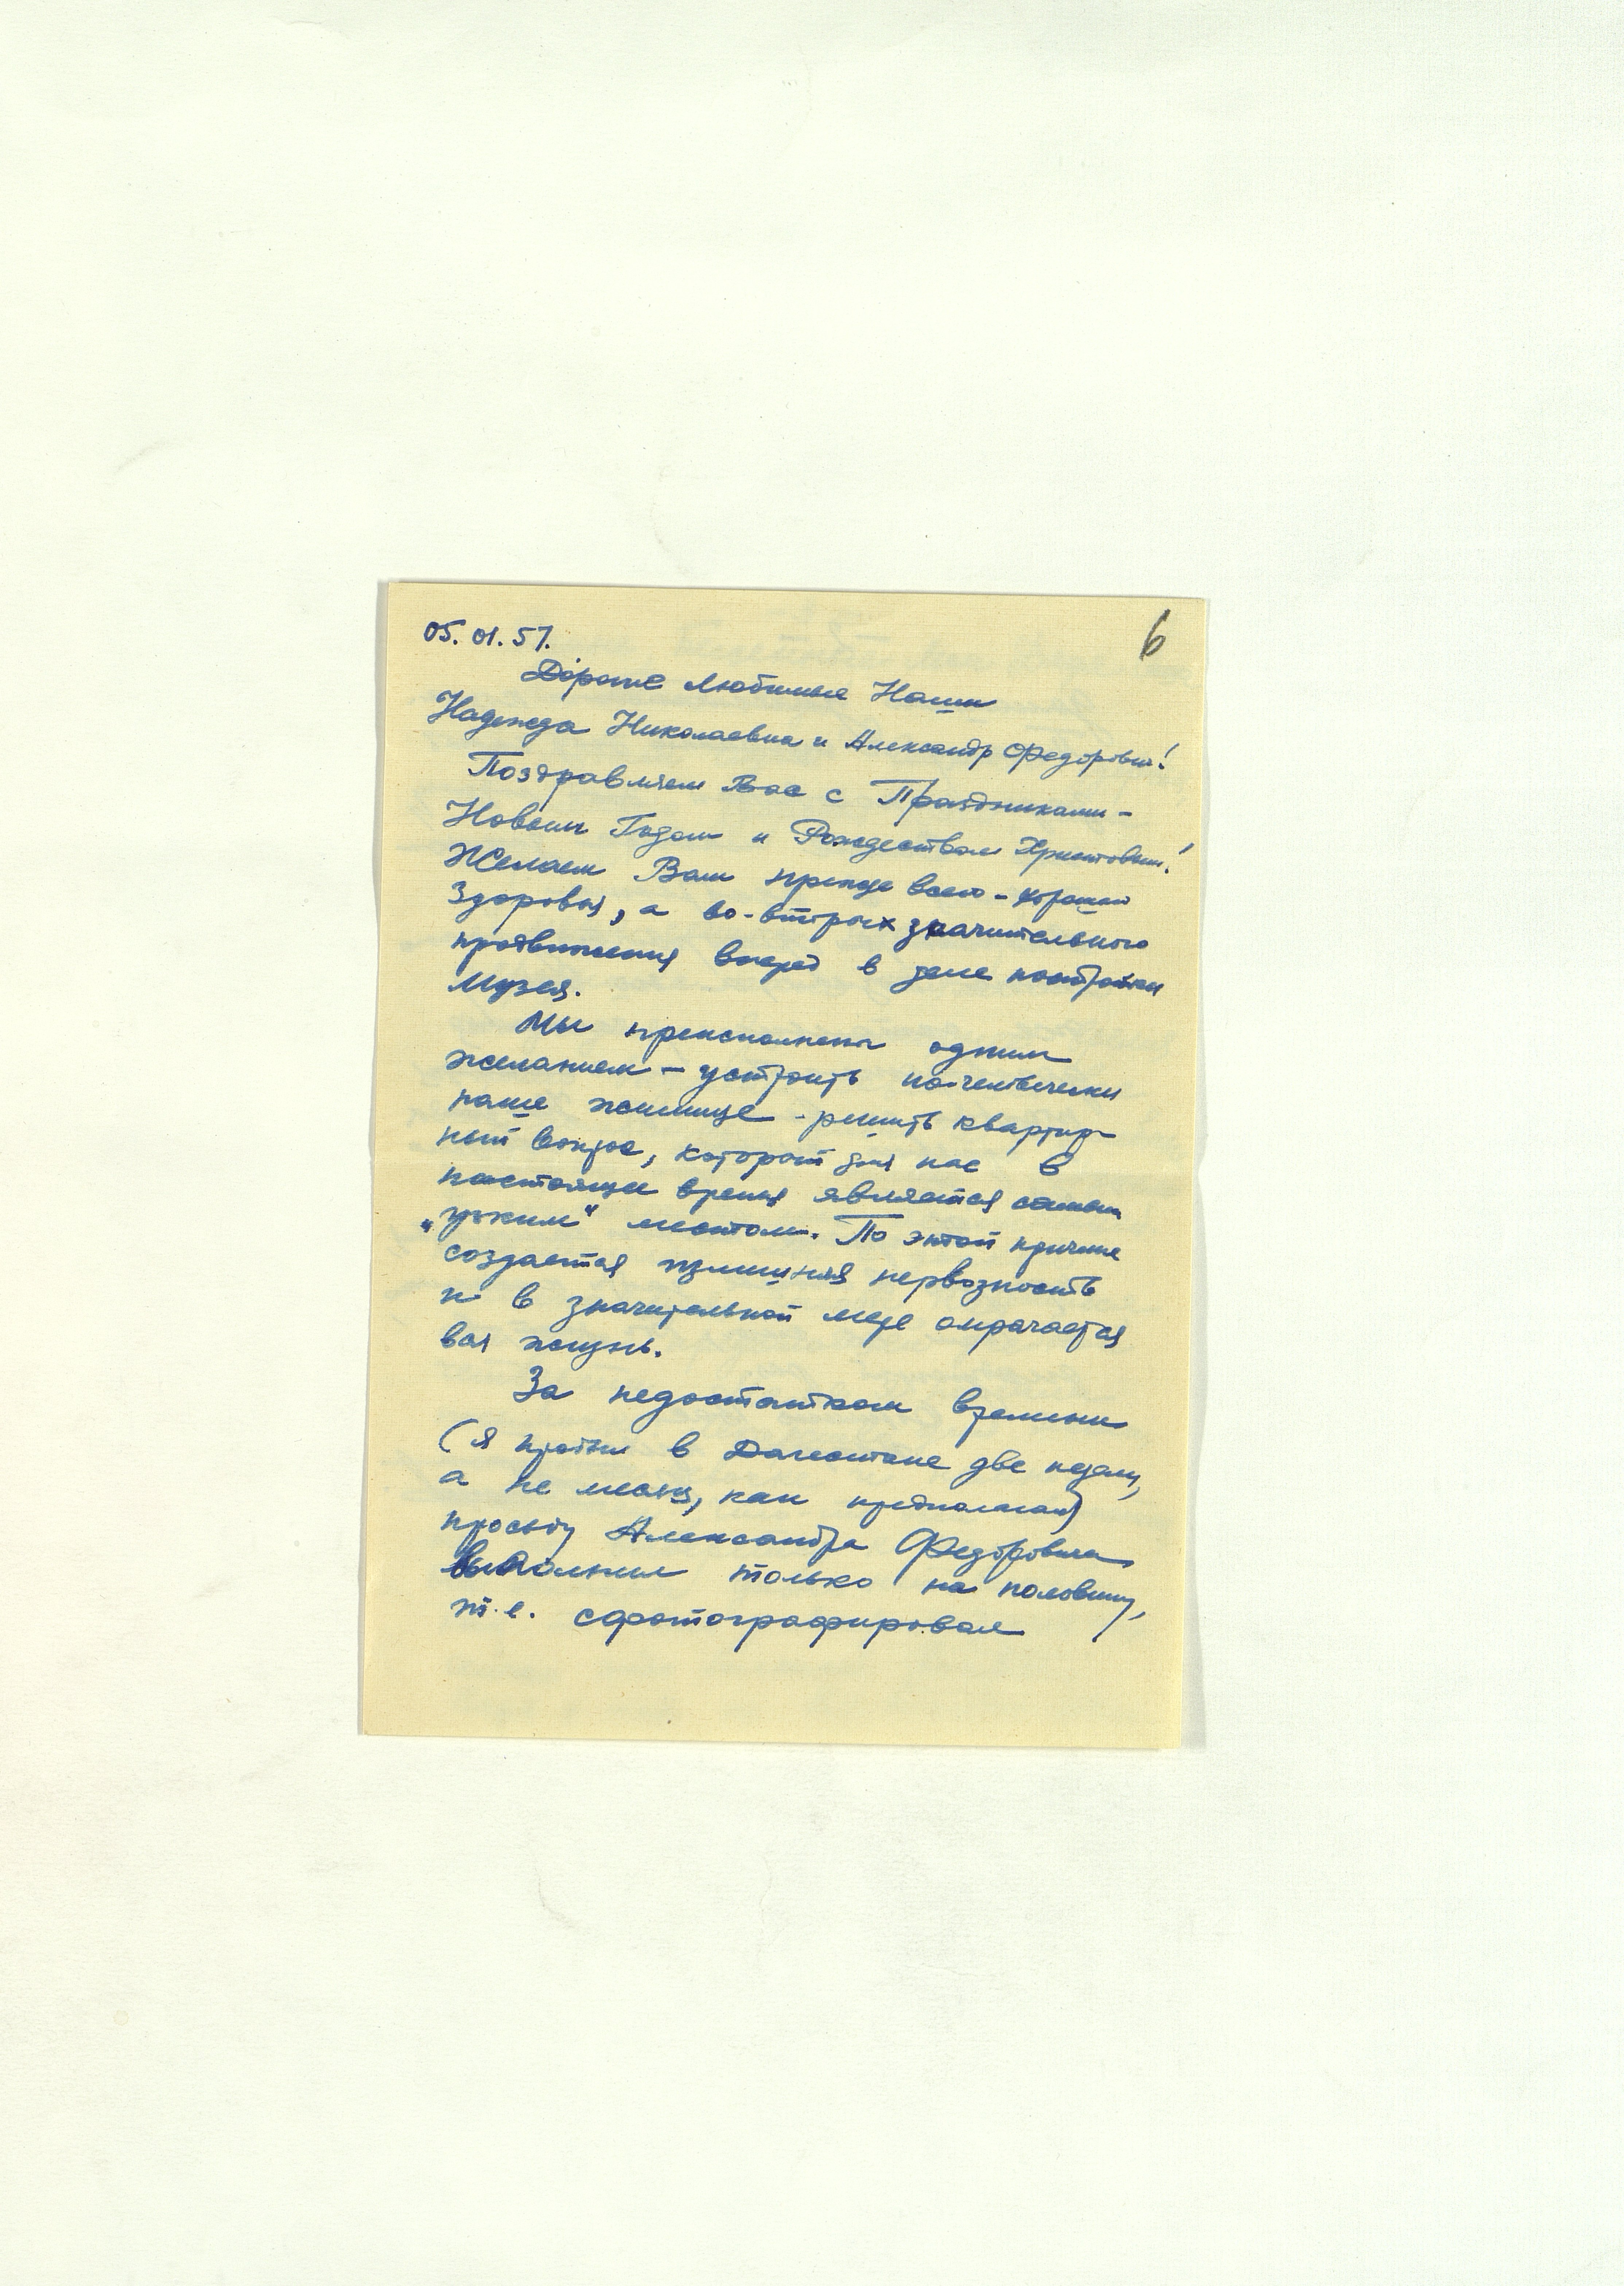 6
05.01.57.
Дорогие Любимые Наши
Надежда Николаевна и Александр Федорович!
Поздравляем Вас с Праздниками –
Новым Годом и Рождеством Христовым!
Желаем Вам прежде всего – хорошего
Здоровья, а во-вторых значительного
продвижения вперед в деле постройки
Музея.
Мы преисполнены одним
желанием – устроить по-человечески
наше жилище – решить квартир-
ный вопрос, который для нас в
настоящее время является самым
„узким“ местом. По этой причине
создается излишняя нервозность
и в значительной мере омрачается
вся жизнь.
За недостатком времени
(я пробыл в Дагестане две недели,
а не месяц, как предполагал)
просьбу Александра Федоровича
выполнил только на половину,
т.е. сфотографировал